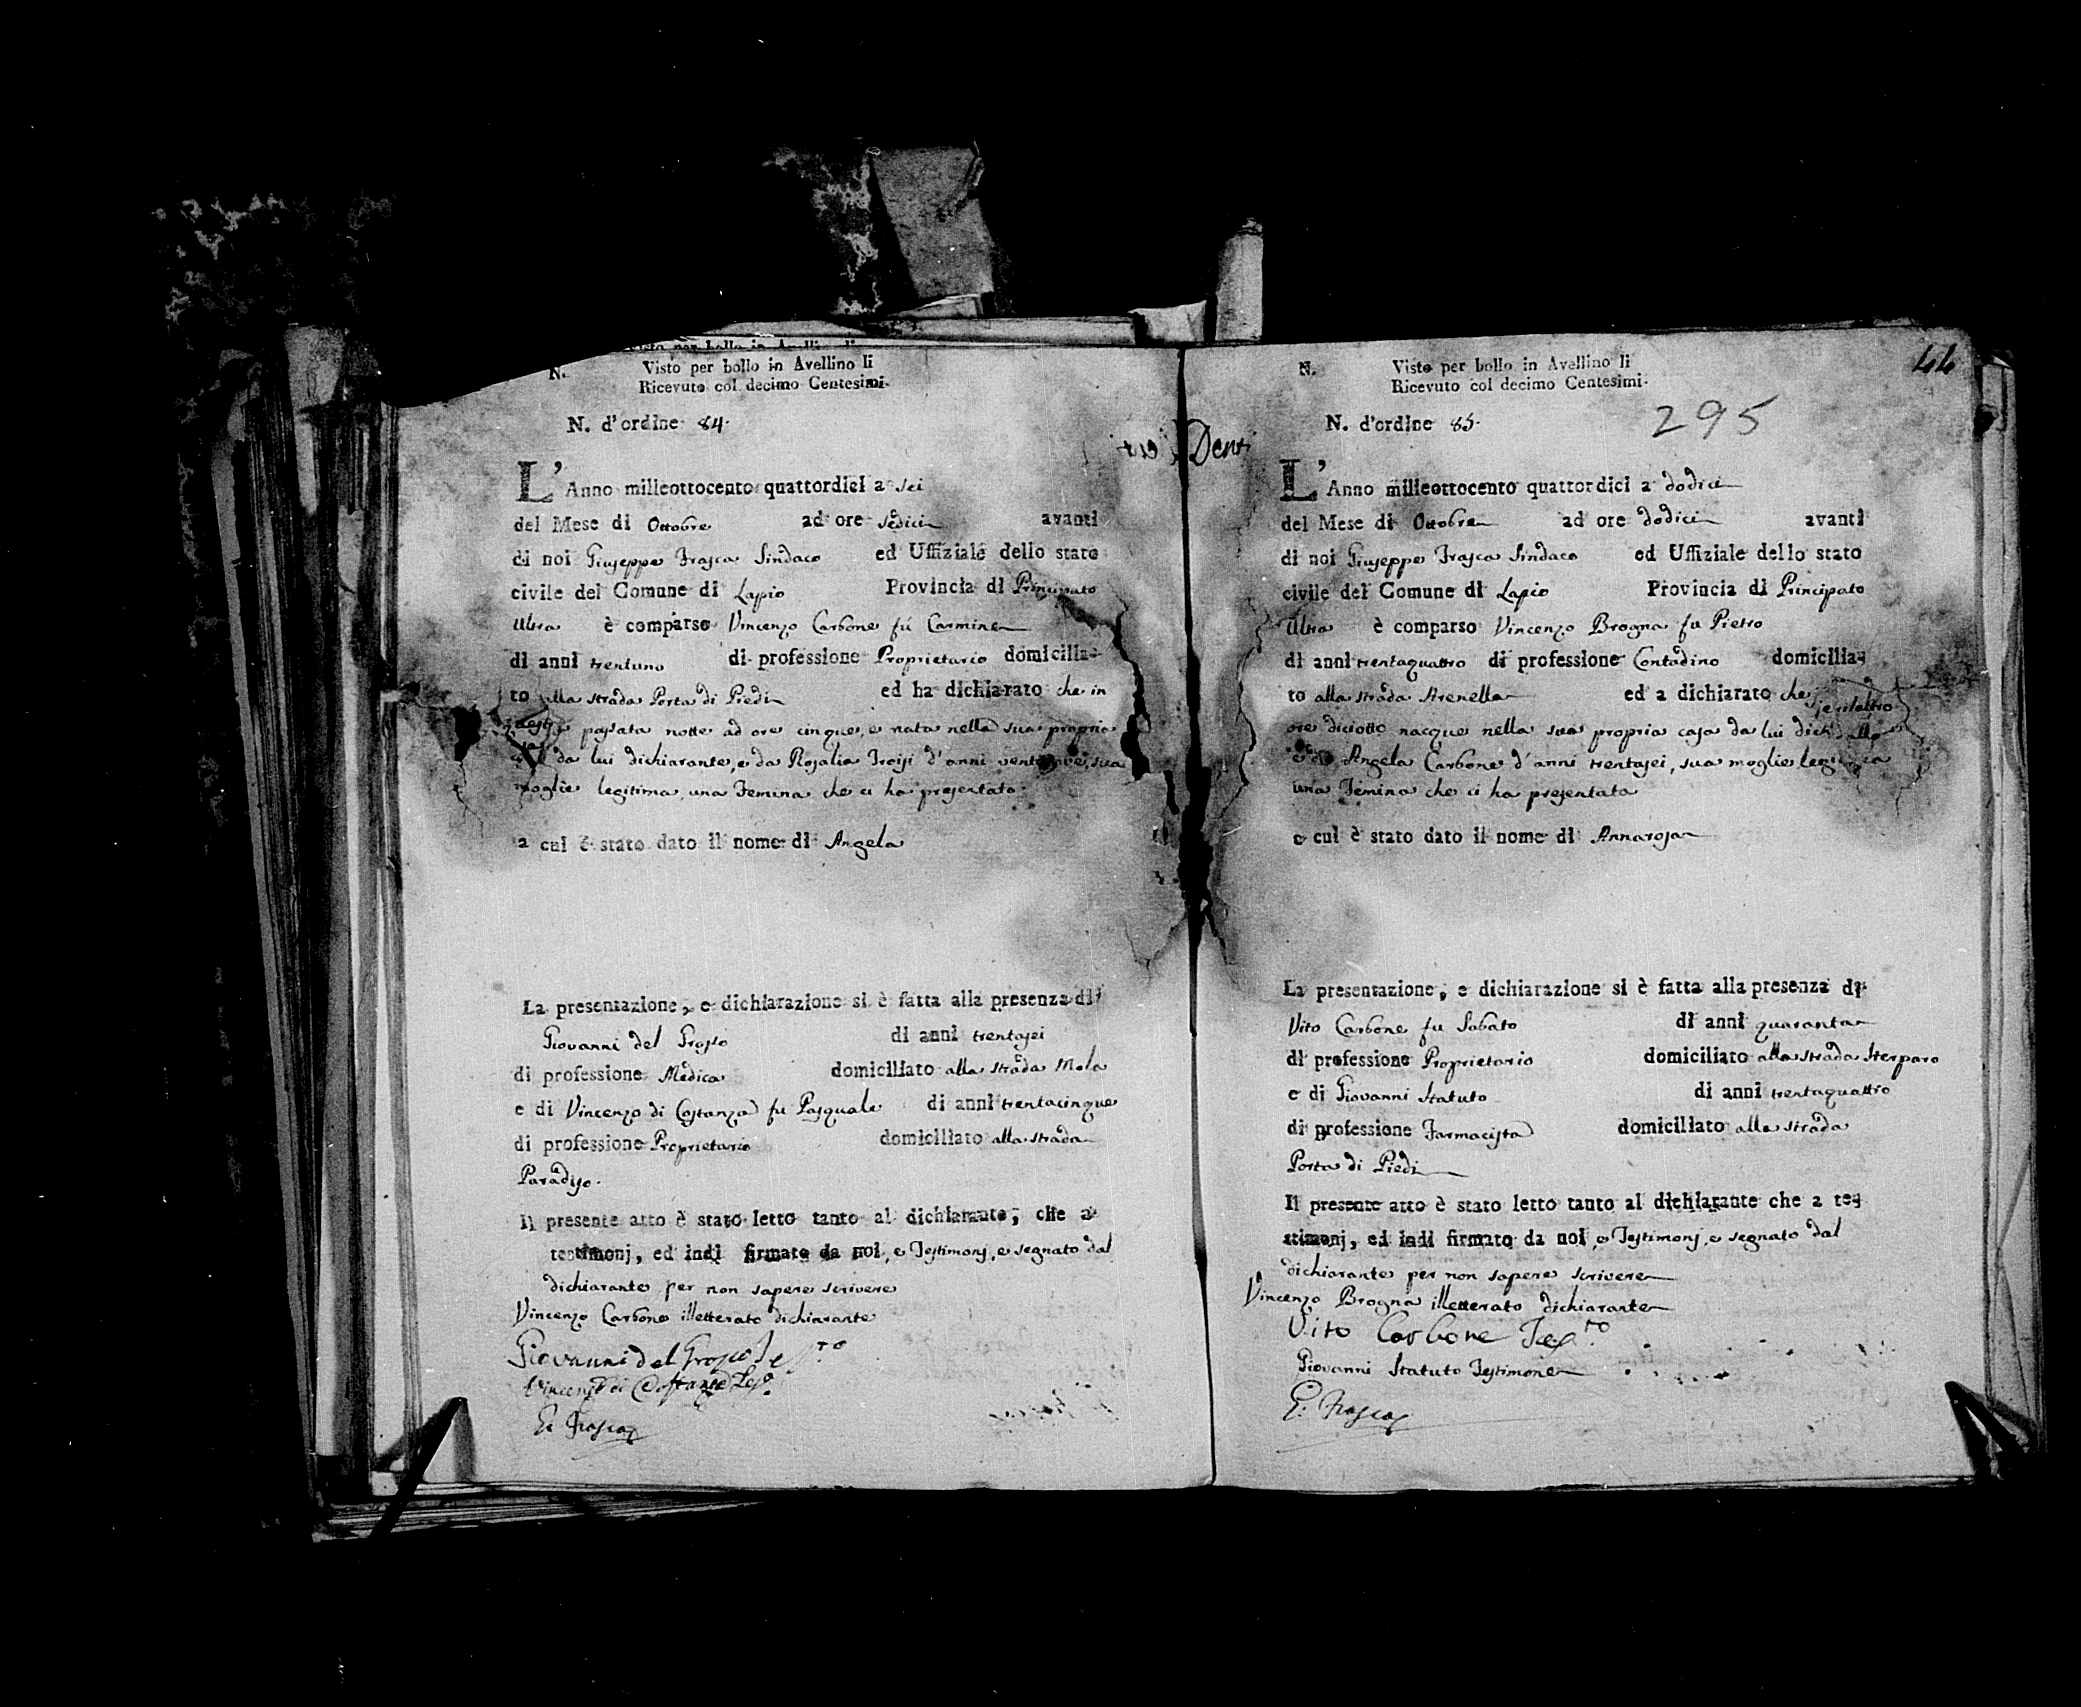 N.
Visto per bollo in Avellino li
Ricevuto col decimo Centesimi.
N. d'ordine 84.
L'Anno milleottocento quattordici a sei
del Mese di Ottobre ad ore sedici avanti
di noi Giuseppe Frasca Sindaco ed Uffiziale dello stato
civile del Comune di Lapio Provincia di Principato
Ultra è comparso Vincenzo Carbone fù Carmine
di anni trentuno di professione Proprietario domicilia-
to alla strada Porta di Piedi ed ha dichiarato che in
passata notte ad ore cinque, è nata nella sua propria
da lui dichiarante, e da Rosalia Troisi d'anni sua
moglie legitima, una Femina che ci ha presentato
a cui è stato dato il nome di Angela
La presentazione, e dichiarazione si è fatta alla presenza di
Giovanni del Grosso di anni trentasei
di professione Medico domiciliato alla strada Mola
e di Vincenzo di Costanza fu Pasquale di anni trentacinque
di professione Proprietario domiciliato alla strada
Paradiso.
Il presente atto è stato letto tanto al dichiarante, che a
testimonj, ed indi firmato da noi, e Testimonj, e segnato dal
dichiarante per non sapere scrivere
Vincenzo Carbone illetterato dichiarante
Giovanni del Grosso
Vincenzo di Costanza
G. Frasca
44
N.
Visto per bollo in Avellino li
Ricevuto col decimo Centesimi.
295
N. d'ordine 85.
L'Anno milleottocento quattordici a dodici
del Mese di Ottobre ad ore dodici avanti
di noi Giuseppe Frasca Sindaco ed Uffiziale dello stato
civile del Comune di Lapio Provincia di Principato
Ultra è comparso Vincenzo Brogna fu Pietro
di anni trentaquattro di professione Contadino domicilia-
to alla strada Arenella ed a dichiarato che
ore diciotto nacque nella sua propria casa da lui
Angela Carbone d'anni trentasei, sua moglie legitima
una Femina che ci ha presentata
e cui è stato dato il nome di Annarosa
La presentazione, e dichiarazione si è fatta alla presenza di
Vito Carbone fu Sabato di anni quaranta
di professione Proprietario domiciliato alla strada Sterparo
e di Giovanni Statuto di anni trentaquattro
di professione Farmacista domiciliato alla strada
Porta di Piedi
Il presente atto è stato letto tanto al dichiarante che a tes-
timonj, ed indi firmato da noi, e Testimonj, e segnato dal
dichiarante per non sapere scrivere
Vincenzo Brogna illetterato dichiarante
Vito Carbone
Giovanni Statuto Testimone
G. Frasca